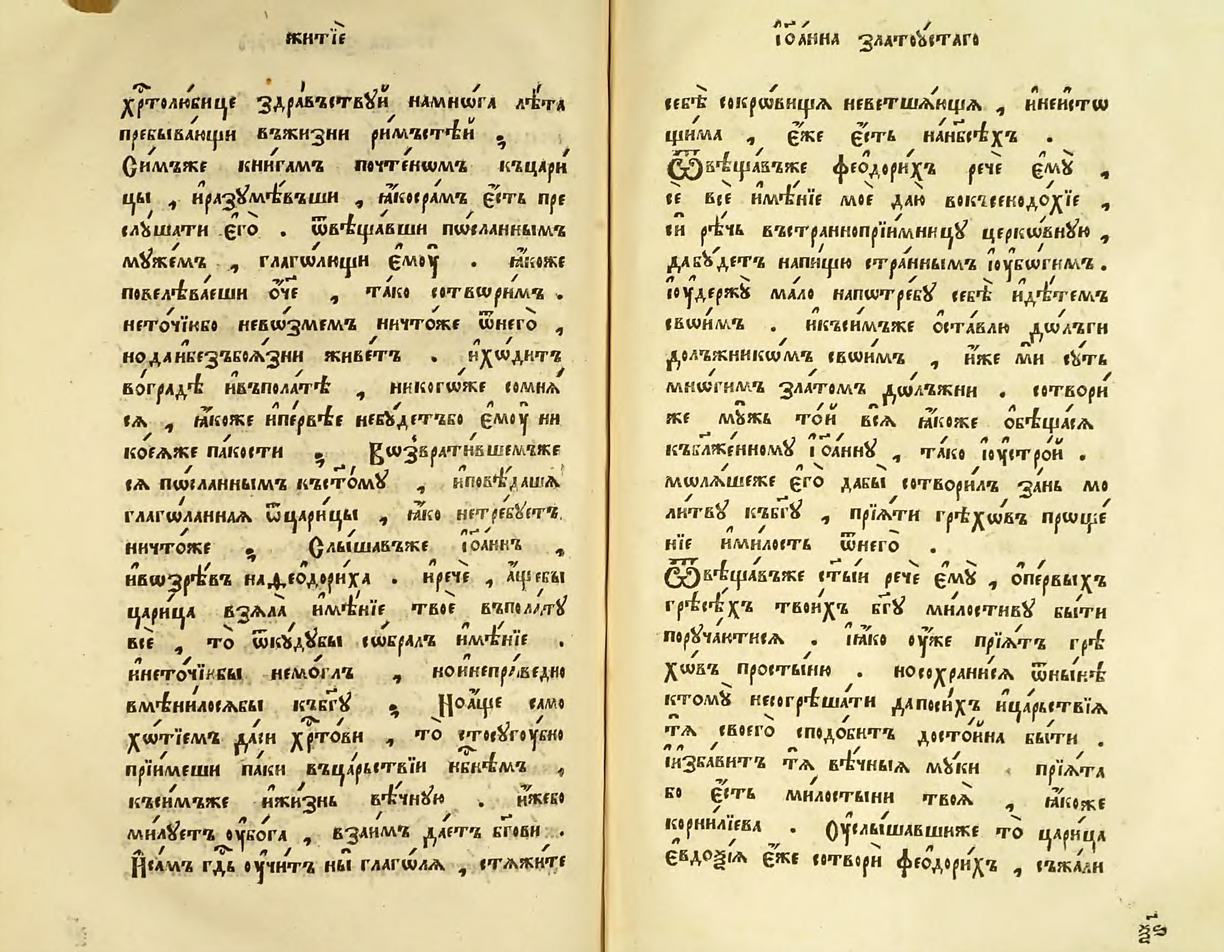 житїѐ
хрⷭ҇толю́бице здра́въствꙋй намнѡ́га лѣ́та
пребыва́ющи въжи́зни ри́мъстѣй ;
Си́мъже кни́гамъ почте́нѡмъ къцари́
цы , и҆разꙋмѣ́въши , ꙗ҆́косра́мъ є҆́сть пре
слꙋ́шати є҆гѡ̀ . ѿвѣща́вши пѡ́сланнымъ
мꙋ́жемъ , глаго́лющи є҆моу̀ . ꙗ҆́коже
повелѣва́еши ѻ҆́ч҃е , та́ко сотвѡри́мъ .
нето́чїюбо невѡ́змемъ ничто́же ѿнегѡ̀ ,
нода́ибезъбоѧ́зни живе́тъ . и҆хѡ́дитъ
во́градѣ и҆въпола́тѣ , никогѡ́же сомнѧ́
сѧ , ꙗ҆́коже и҆пе́рвѣе небꙋ́детъбо є҆моу̀ ни
коеѧ́же па́кости ; Вѡзврати́вшемъже
сѧ пѡ́сланнымъ къст҃о́мꙋ , и҆повѣ́дашѧ
глаго́ланнаѧ ѿцари́цы , ꙗ҆́ко нетре́бꙋетъ
ничто́же ; Слы́шавъже і҆ѡа́ннъ ,
и҆вѡзрѣ́въ наѳео́дориха . и҆речѐ , а҆́щебы
цари́ца взѧла̀ и҆мѣ́нїе твоѐ въпола́тꙋ
всѐ , то̀ ѿкꙋ́дꙋбы сѡбра́лъ и҆мѣ́нїе .
и҆нето́чїюбы немо́глъ , нои҆непра́ведно
вмѣни́лосѧбы къбг҃ꙋ ; Ноа҆́ще само
хѡтї́емъ да́си хрⷭ҇то́ви , то̀ стосꙋгоу́бно
прїи́меши па́ки въца́рьствїи нбⷭ҇нѣмъ ,
късимъже и҆жи́знь вѣ́чнꙋю . и҆́жебо
ми́лꙋетъ оу҆бо́га , взаи́мъ дае́тъ бг҃ови .
И҆са́мъ гдⷭ҇ь оу҆чи́тъ ны̀ глаго́лѧ , стѧжи́те
і҆ѡа́нна златоꙋ́стаго
себѣ̀ сокрѡ́вища неветша́ющаѧ , и҆неи́стѡ
щима , є҆́же є҆́сть нан҃бсѣ́хъ .
Ѿвѣща́въже ѳеѻ́дорихъ речѐ є҆мꙋ̀ ,
сѐ всѐ и҆мѣ́нїе моѐ даю̀ вокъсенодохі́е ,
си̑ рѣ́чь въстраннопрїи́мницꙋ церкѡ́внꙋю ,
дабꙋ́детъ напи́щю стра́ннымъ і҆оу҆бѡ́гимъ .
і҆оу҆держꙋ̀ ма́ло напѡтре́бꙋ себѣ̀ и҆дѣ́темъ
свѡи́мъ . и҆късимъже ѡ҆ста́влю дѡ́лъги
должникѡ́мъ свѡи́мъ , и҆́же мѝ сꙋ́ть
мнѡ́гимъ зла́томъ дѡ́лъжни . сотвори́
же мꙋ́жь то́й всѧ̀ ꙗ҆́коже ѡ҆бѣща́сѧ
къблаже́нномꙋ і҆ѡа́ннꙋ , та́ко і҆оу҆стро́й .
мѡлѧ́шеже є҆гѡ̀ дабы̀ сотвори́лъ за́нь мо
ли́твꙋ къбг҃ꙋ , прїѧ́ти грѣхѡ́въ прѡще́
нїе и҆ми́лость ѿнегѡ̀ .
Ѿвѣща́въже ст҃ы́и речѐ є҆мꙋ̀ , ѡ҆пе́рвыхъ
грѣсѣ́хъ твои́хъ бг҃ꙋ ми́лостивꙋ бы́ти
порꙋча́ютисѧ . і҆ꙗ҆́ко оу҆же прїѧ́тъ грѣ
хѡ́въ просты́ню . носохрани́сѧ ѿны́нѣ
ктомꙋ̀ несогрѣша́ти дапоси́хъ и҆ца́рьствїѧ
тѧ̀ своегѡ̀ сподо́битъ досто́йна бы́ти .
і҆изба́витъ тѧ̀ вѣ́чныѧ мꙋ́ки . прїѧ́та
бо є҆́сть ми́лостыни твоѧ̀ , ꙗ҆́коже
корни́лїева . Оу҆слы́шавшиже то̀ цари́ца
є҆ѵдоѯі́ѧ є҆́же сотворѝ ѳеѻ́дорихъ , съжа́ли